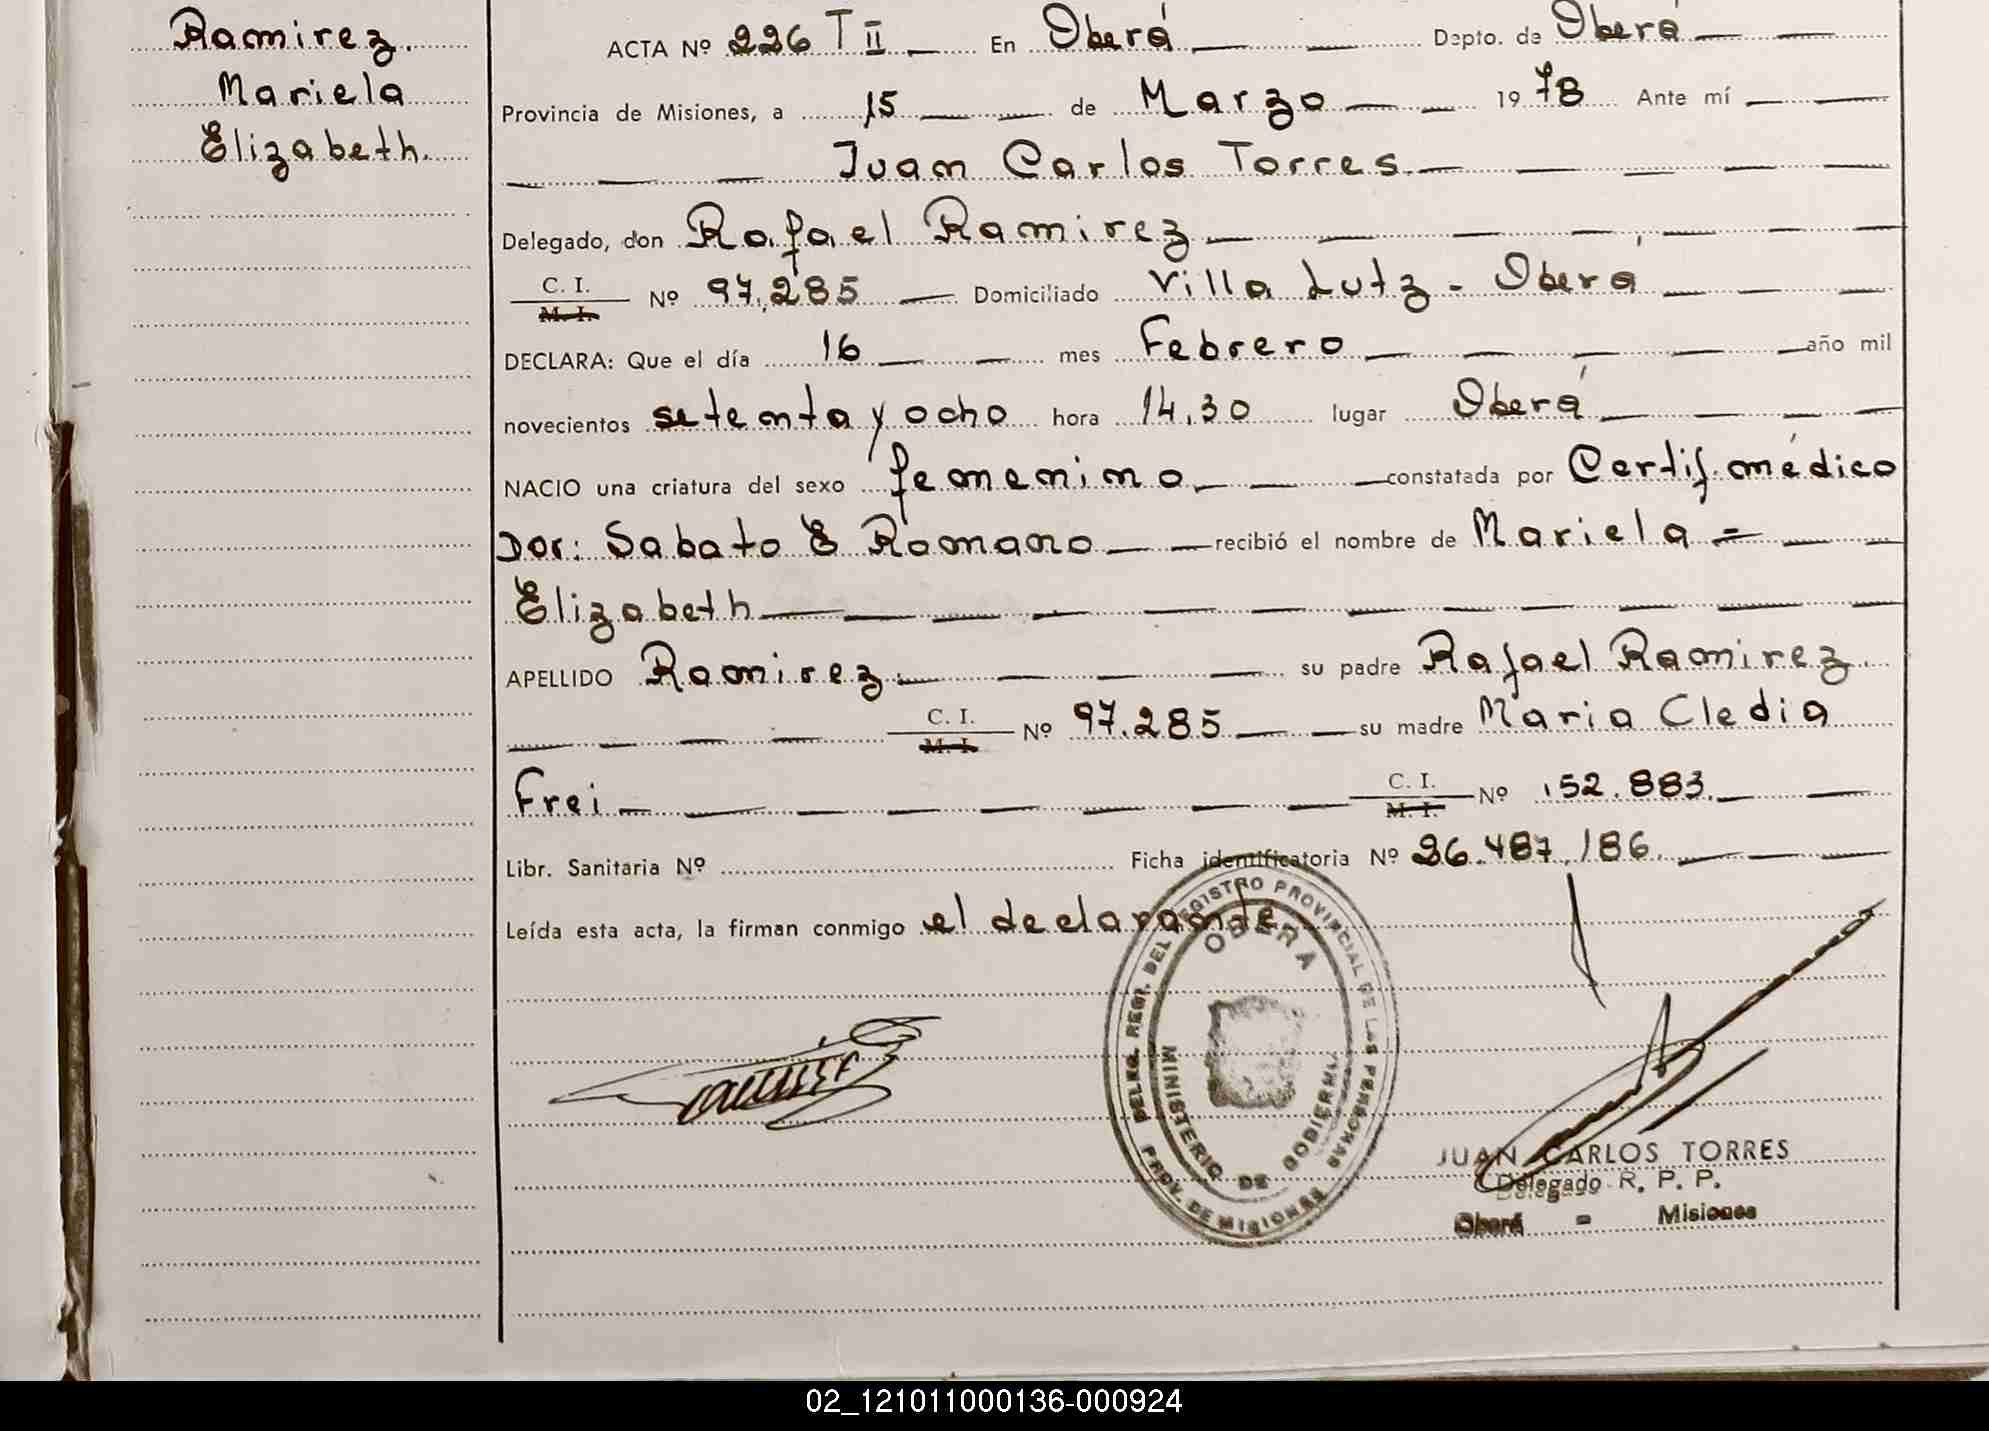 Ramirez.
Mariela
Elizabeth.
ACTA Nº 226 T II En Oberá Depto. de Oberá
Provincia de Misiones, a 15 de Marzo 1978 Ante mí
Juan Carlos Torres.
Delegado, don Rafael Ramirez
C. I.
M. I. Nº 97.285 Domiciliado Villa Lutz - Oberá
DECLARA: Que el día 16 mes Febrero año mil
novecientos setenta y ocho hora 14,30 lugar Oberá
NACIO una criatura del sexo femenino constatada por Certif. médico
Dor: Sabato E Romano recibió el nombre de Mariela =
Elizabeth
APELLIDO Ramirez su padre Rafael Ramirez.
C. I.
M. I. Nº 97.285 su madre Maria Cledia
Frei C. I.
M. I. Nº 152.883.
Libr. Sanitaria Nº Ficha identificatoria Nº 26.487.186.
Leída esta acta, la firman conmigo el declarande
DELEG. REGI. DEL REGISTRO PROVINCIAL DE LAS PERSONAS
OBERA
MINISTERIO DE GOBIERNO
PROV. DE MISIONES
JUAN CARLOS TORRES
Delegado R. P. P.
Oberá - Misiones
02_121011000136-000924